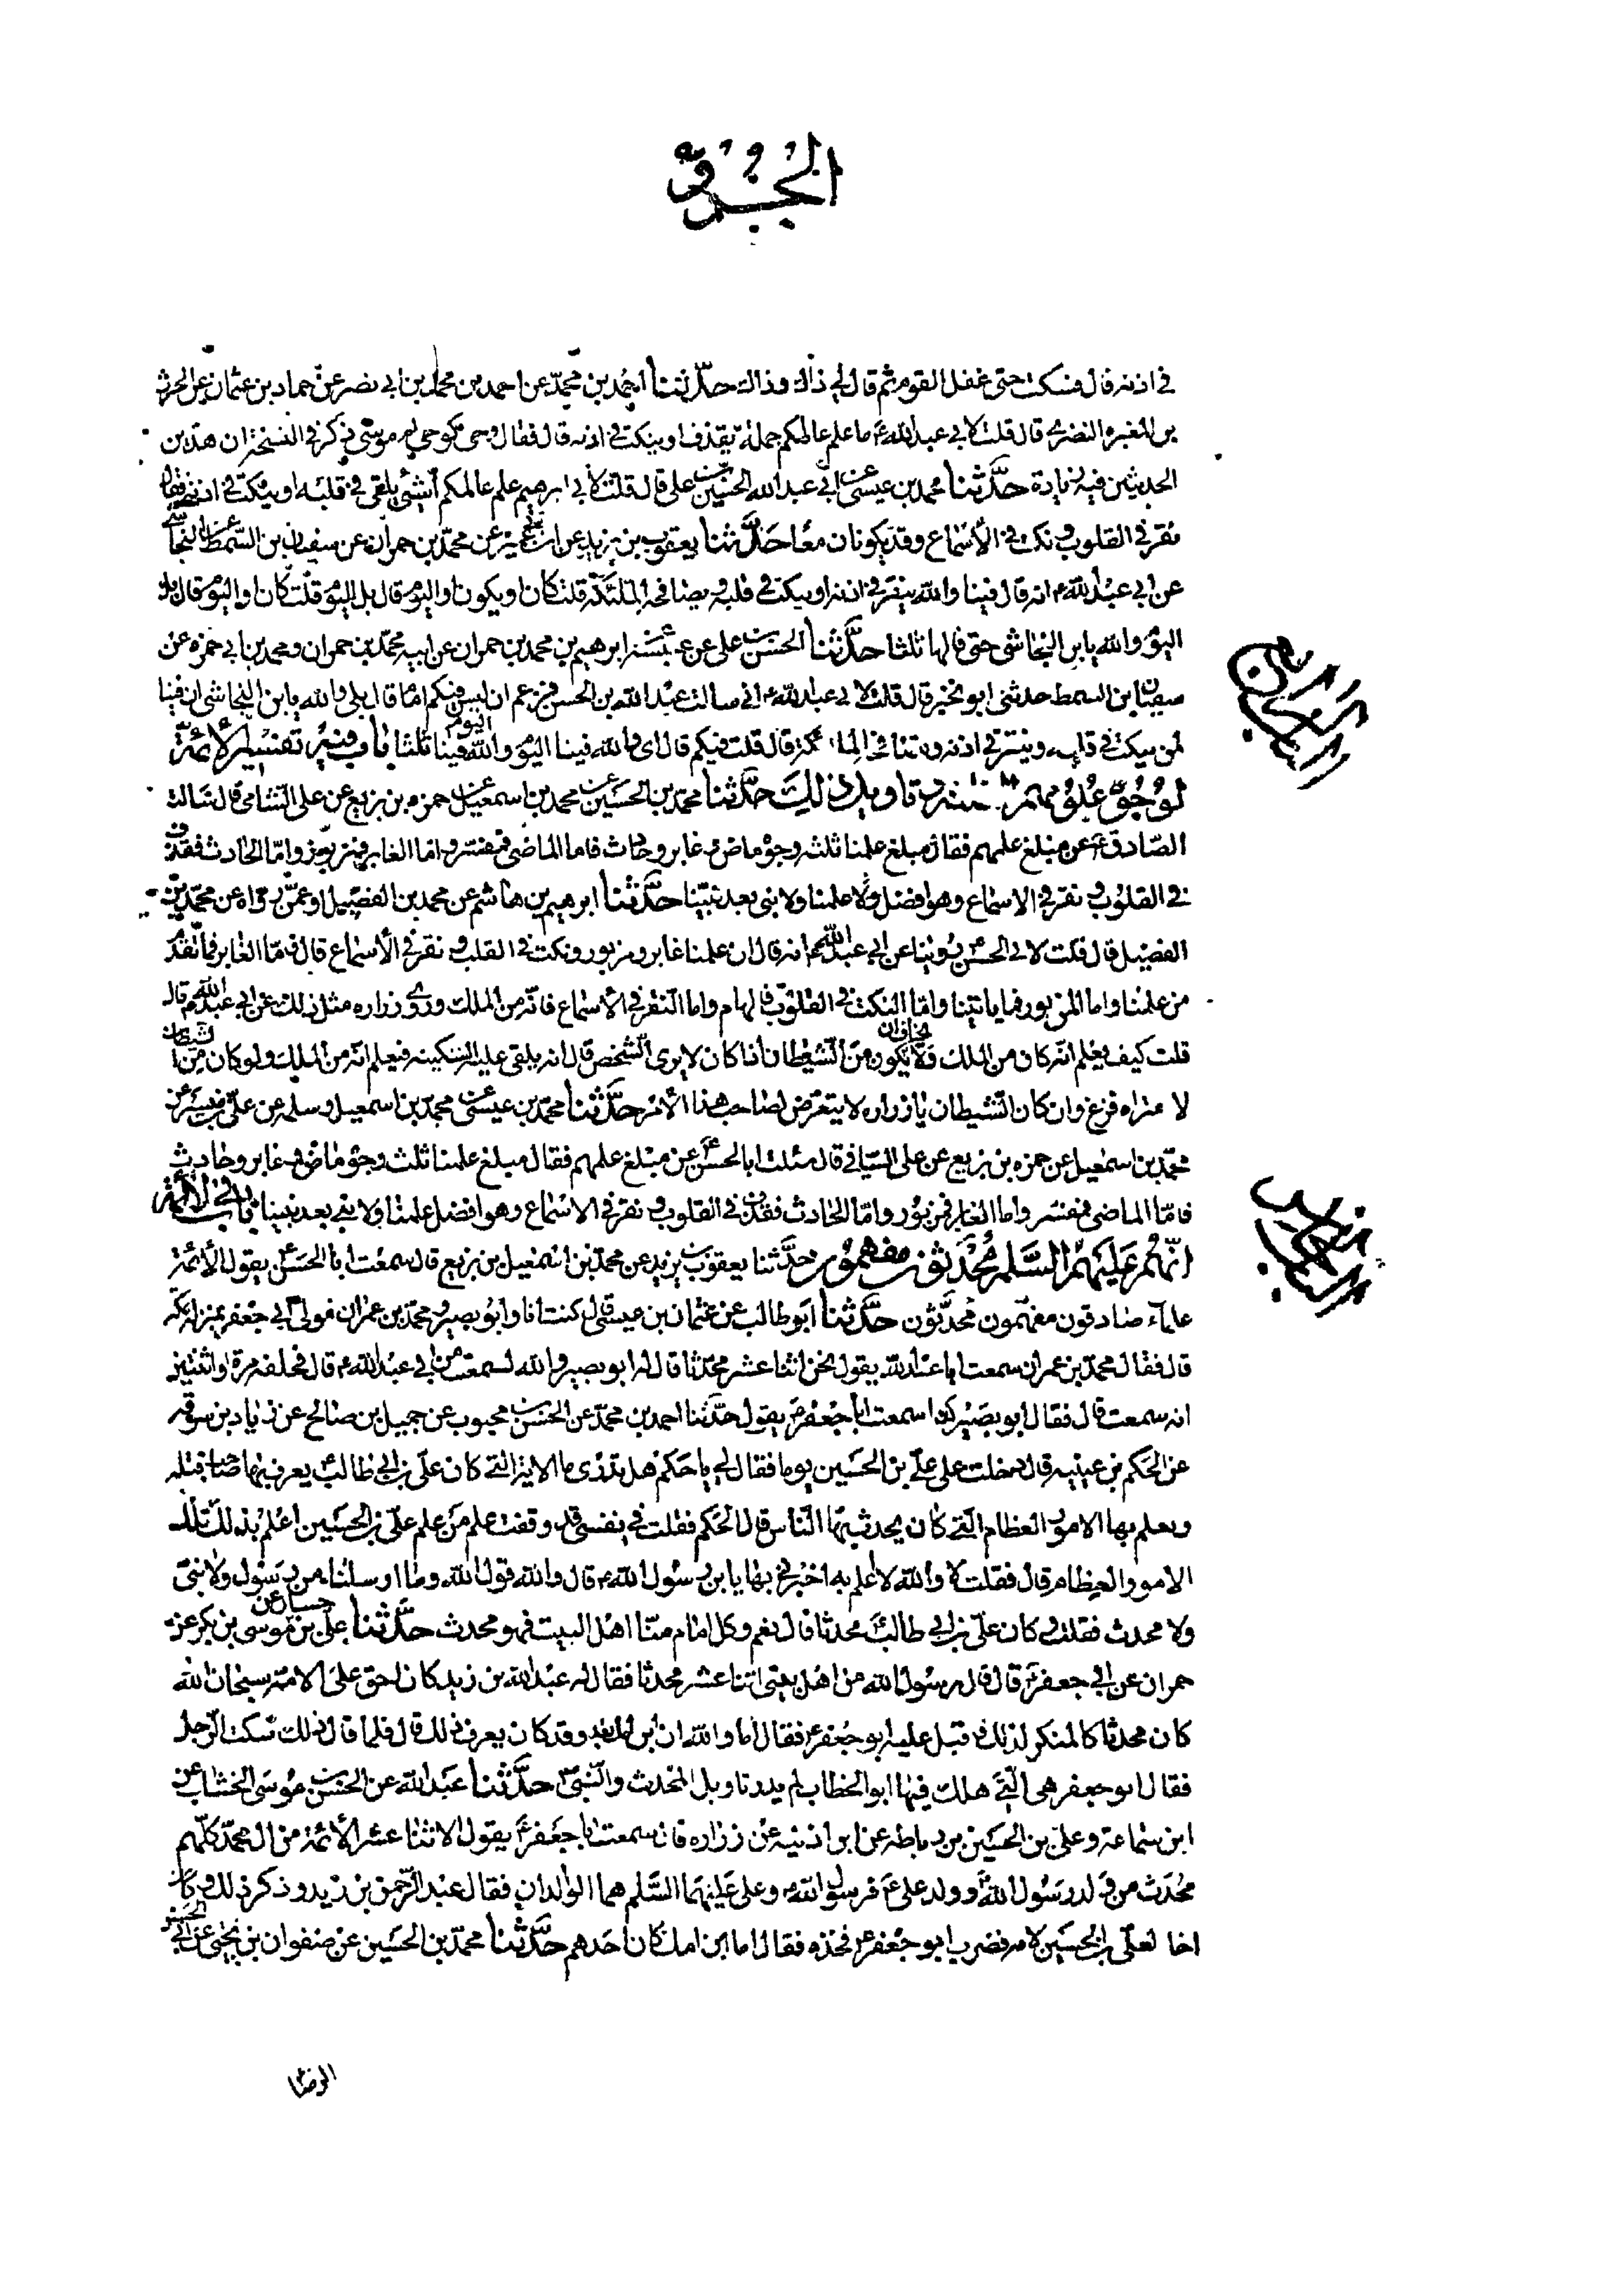 الجزو
في اذنه قال فسكت حتى غفل القوم ثم قال لي ذاك وذاك حدثنا احمد بن محمد عن احمد بن محمد بن ابي نصر عن حماد بن عثمان عن الحرث
بن المغيره النضري قال قلت لابي عبد الله ما علم عالمكم جملة يقذف او ينكت في اذنه قال فقال وحى كوحى ام موسى ذكر في النسخة ان هذين
الحديثين فيه زيادة حدثنا محمد بن عيسى عن ابي عبد الله الحسين بن علي قال قلت لابي ابرهيم علم عالمكم أشئ يلقى في قلبه او ينكت في اذنه فقال
نقر في القلوب ونكت في الأسماع وقد يكونان معا حدثنا يعقوب بن يزيد عن ابن ابي عمير عن محمد بن حمران عن سفيان بن السمط عن النجاشي
عن ابي عبد الله انه قال فينا والله ينقر في اذنه او ينكت في قلبه ويصافحه الملئكة قلت كان ويكون او اليوم قال بل اليوم قلت كان او اليوم قال بل
اليوم والله يابن النجاشي حتى قالها ثلثا حدثنا الحسن بن علي عن عبيسه ابرهيم بن محمد بن حمران عن ابيه محمد بن حمران ومحمد بن ابي حمزه عن
سفين ابن السمط حدثني ابو نخير قال قلت لابي عبد الله اني سالت عبد الله بن الحسن فزعم ان ليس فيكم امام قال بلى والله يابن النجاشي ان فينا
لمن ينكت في قلبه وينقر في اذنه وتصافحه الملئكة قال قلت فيكم اليوم قال اي والله فينا اليوم والله فينا ثلثا باب فيه تفسير الأئمة
لوجوه علومهم تاويل ذلك حدثنا محمد بن الحسين عن محمد بن اسمعيل عن حمزه بن بزيع عن علي الشامي قال سالت
الصادق عن مبلغ علمهم فقال مبلغ علمنا ثلثه وجوه ماض وغابر وحادث فاما الماضى فمفسر واما الغابر فمزبور واما الحادث فقذف
في القلوب ونقر في الاسماع وهو افضل علمنا ولا نبي بعد نبينا حدثنا ابرهيم بن هاشم عن محمد بن الفضيل او عمن رواه عن محمد بن
الفضيل قال قلت لابي الحسن روينا عن ابي عبد الله انه قال ان علمنا غابر ومزبور ونكت في القلب ونقر في الأسماع قال فاما الغابر فما تقدم
من علمنا واما المزبور فما ياتينا واما النكت في القلوب فالهام واما النقر في الأسماع فانه من الملك وروى زراره مثل ذلك عن ابي عبد الله قال
قلت كيف يعلم انه كان من الملك ولا يخاف ان يكون من الشيطان اذا كان لا يرى الشخص قال انه يلقى عليه السكينه فيعلم انه من الملك ولو كان من الشيطان
لاعتراه فزع وان كان الشيطان يا زراره لا يتعرض لصاحب هذا الأمر حدثنا محمد بن عيسى عن محمد بن اسمعيل وسلمه عن علي بن ميسر عن
محمد بن اسمعيل عن حمزه بن بزيع عن على السائي قال سئلت ابا الحسن عن مبلغ علمهم فقال مبلغ علمنا ثلث وجوه ماض وغابر وحادث
فاما الماضى فمفسر واما الغابر فمزبور واما الحادث فقذف في القلوب ونقر في الاسماع وهو افضل علمنا ولا نبي بعد نبينا باب في الأئمة
انهم عليهم السلم محدثون مفهمون حدثنا يعقوب بن يزيد عن محمد بن اسمعيل بن بزيع قال سمعت ابا الحسن يقول الأئمة
علماء صادقون مفهمون محدثون حدثنا ابو طالب عن عثمان بن عيسى قال كنت انا وابو بصير ومحمد بن عمران مولى ابي جعفر بمنزله بمكه
قال فقال محمد بن عمران سمعت ابا عبد الله يقول نحن اثنا عشر محدثا قال له ابو بصير والله لسمعت من ابي عبد الله قال فحلفه مرة او اثنتين
انه سمعت قال فقال ابو بصير كذا سمعت ابا جعفر يقول حدثنا احمد بن محمد عن الحسن بن محبوب عن جميل بن صالح عن زياد بن سوقه
عن الحكم بن عيينه قال دخلت على علي بن الحسين يوما فقال لي يا حكم هل تدرى ما الاية التي كان علي بن ابي طالب يعرف بها صاحب قتله
ويعلم بها الامور العظام التي كان يحدث بها الناس قال الحكم فقلت في نفسي قد وقفت علم من علم علي بن الحسين اعلم بذلك تلك
الامور العظام قال فقلت لا والله لا اعلم به اخبرني بها يابن رسول الله قال والله قول الله وما ارسلنا من رسول ولا نبي
ولا محدث فقلت وكان علي بن ابي طالب محدثا قال نعم وكل امام منا اهل البيت فهو محدث حدثنا علي بن حسان عن موسى بن بكر عن
حمران عن ابي جعفر قال قال رسول الله من اهل بيتى اثنا عشر محدثا فقال له عبد الله بن زيد كان احق على الامة سبحان الله
كان محدثا كالمنكر لذلك فاقبل عليه ابو جعفر فقال اما والله ان ابن امك بعد وقد كان يعرف ذلك قال فلما قال ذلك سكت الرجل
فقال ابو جعفر هي التي هلك فيها ابو الخطاب لم يدر تاويل المحدث والنبي حدثنا عبد الله عن الحسن بن موسى الخشاب عن
ابن سماعة وعلي بن الحسين بن رباطه عن ابن اذنيه عن زراره قال سمعت ابا جعفر يقول الاثنا عشر الأئمة من ال محمد كلهم
محدث من ولد رسول الله وولد علي فرسول الله وعلي عليهما السلم هما الوالدان فقال عبد الرحمن بن زيد وذكر ذلك وكان
اخا لعلي بن الحسين لامه فضرب ابو جعفر فخذه فقال اما ابن امك كان احدهم حدثنا محمد بن الحسين عن صفوان بن يحيى عن ابي الحسن
الرضا